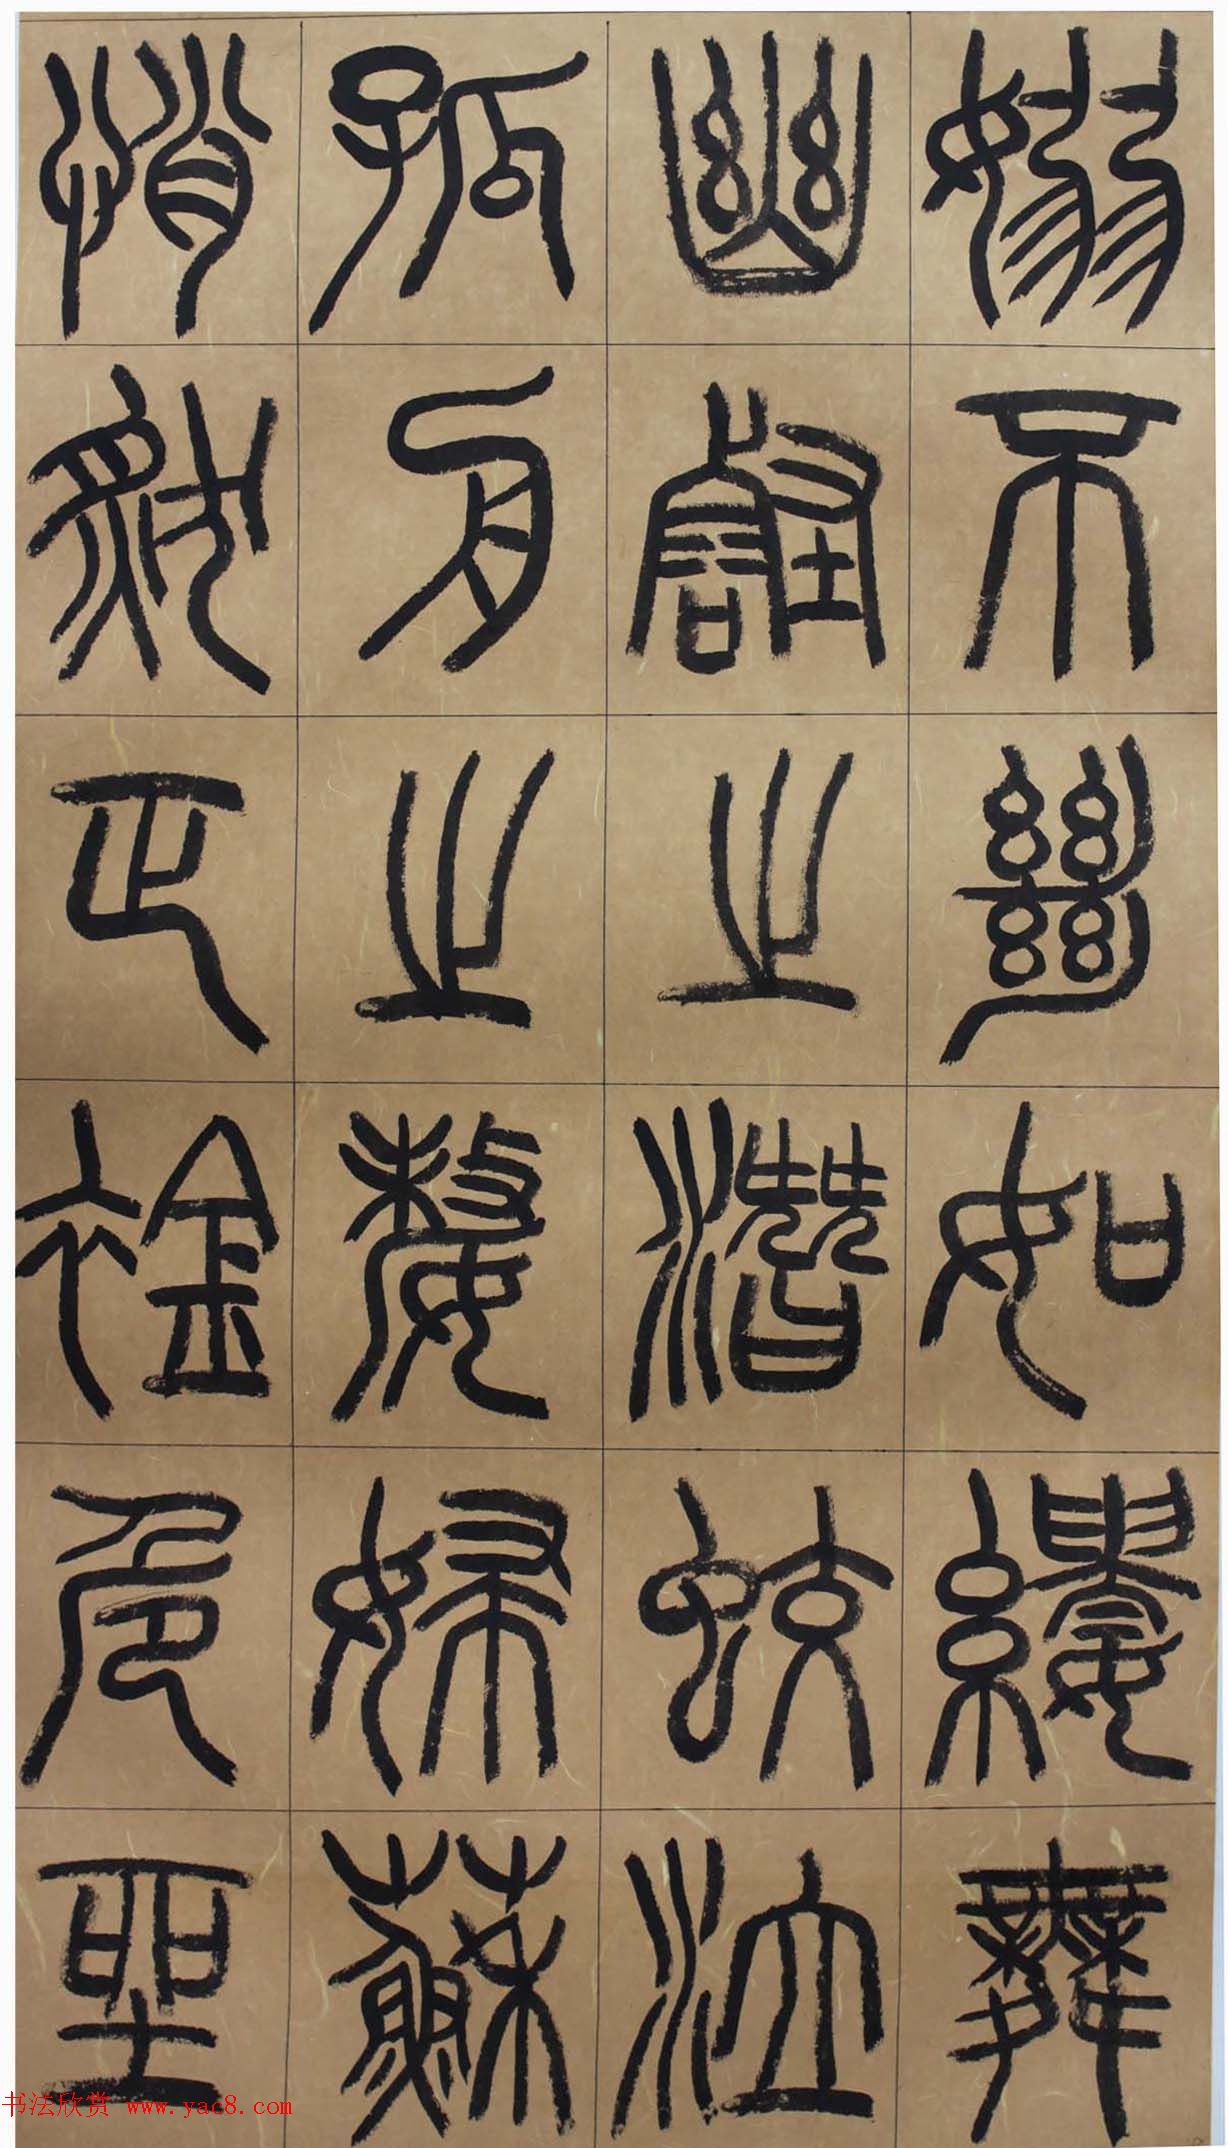 嫋不絕如縷舞
幽壑之潛蛟泣
孤舟之嫠婦蘇
悄然正襟危坐
书法欣赏 www.yac8.com